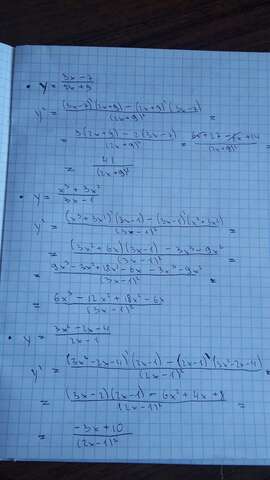 • y = (3x-7)/(2x+9)
y' = ((3x-7)'(2x+9) - (2x+9)'(3x-7))/(2x+9)² =
= (3(2x+9) - 2(3x-7))/(2x+9)² = (6x+27-6x+14)/(2x+9)²
= 41/(2x+9)²
• y = (x³+3x²)/(3x-1)
y' = ((x³+3x²)'(3x-1) - (3x-1)'(x³+3x²))/(3x-1)² =
= ((3x²+6x)(3x-1) - 3x³-9x²)/(3x-1)² =
= (9x³-3x²+18x²-6x-3x³-9x²)/(3x-1)² =
= (6x³-12x²+18x²-6x)/(3x-1)²
• y = (3x²-2x-4)/(2x-1)
y' = ((3x²-2x-4)'(2x-1) - (2x-1)'(3x²-2x-4))/(2x-1)² =
= ((3x-2)(2x-1) - 6x²+4x+8)/(2x-1)² =
= (-3x+10)/(2x-1)²